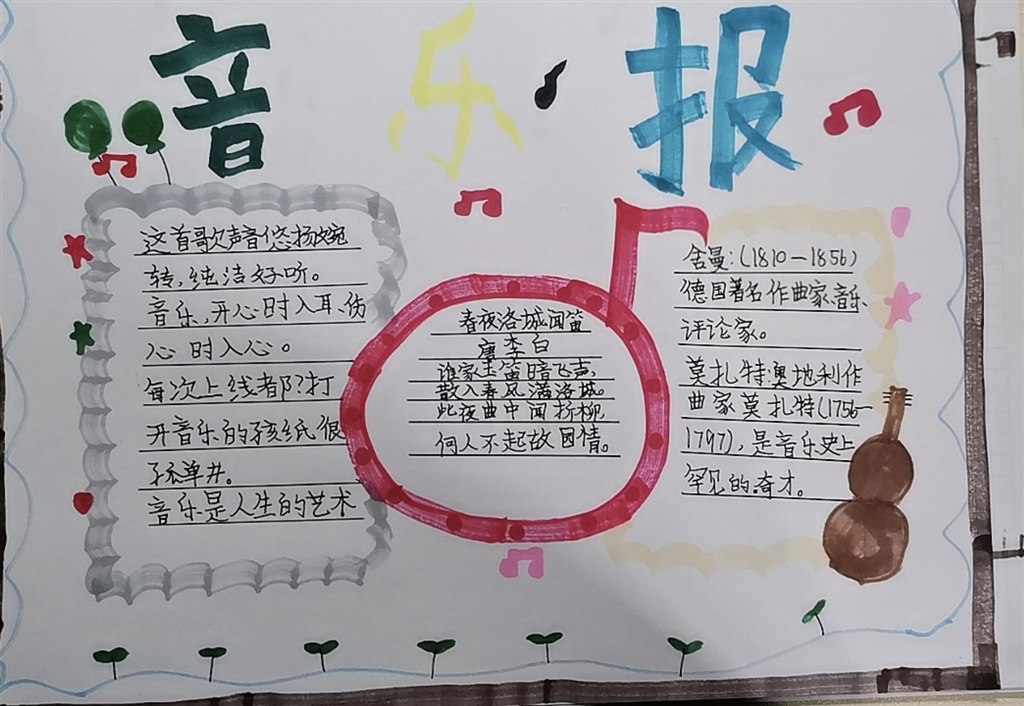 音乐报
这首歌声音悠扬婉
转,纯洁好听。
音乐,开心时入耳、伤
心时入心。
每次上线都?打
开音乐的孩纸很
孤单井。
音乐是人生的艺术
春夜洛城闻笛
唐李白
谁家玉笛暗飞声,
散入春风满洛城。
此夜曲中闻折柳,
何人不起故园情。
舍曼:(1810—1856)
德国著名作曲家、音乐
评论家。
莫扎特:奥地利作
曲家莫扎特(1756-
1797),是音乐史上
罕见的.奇才。